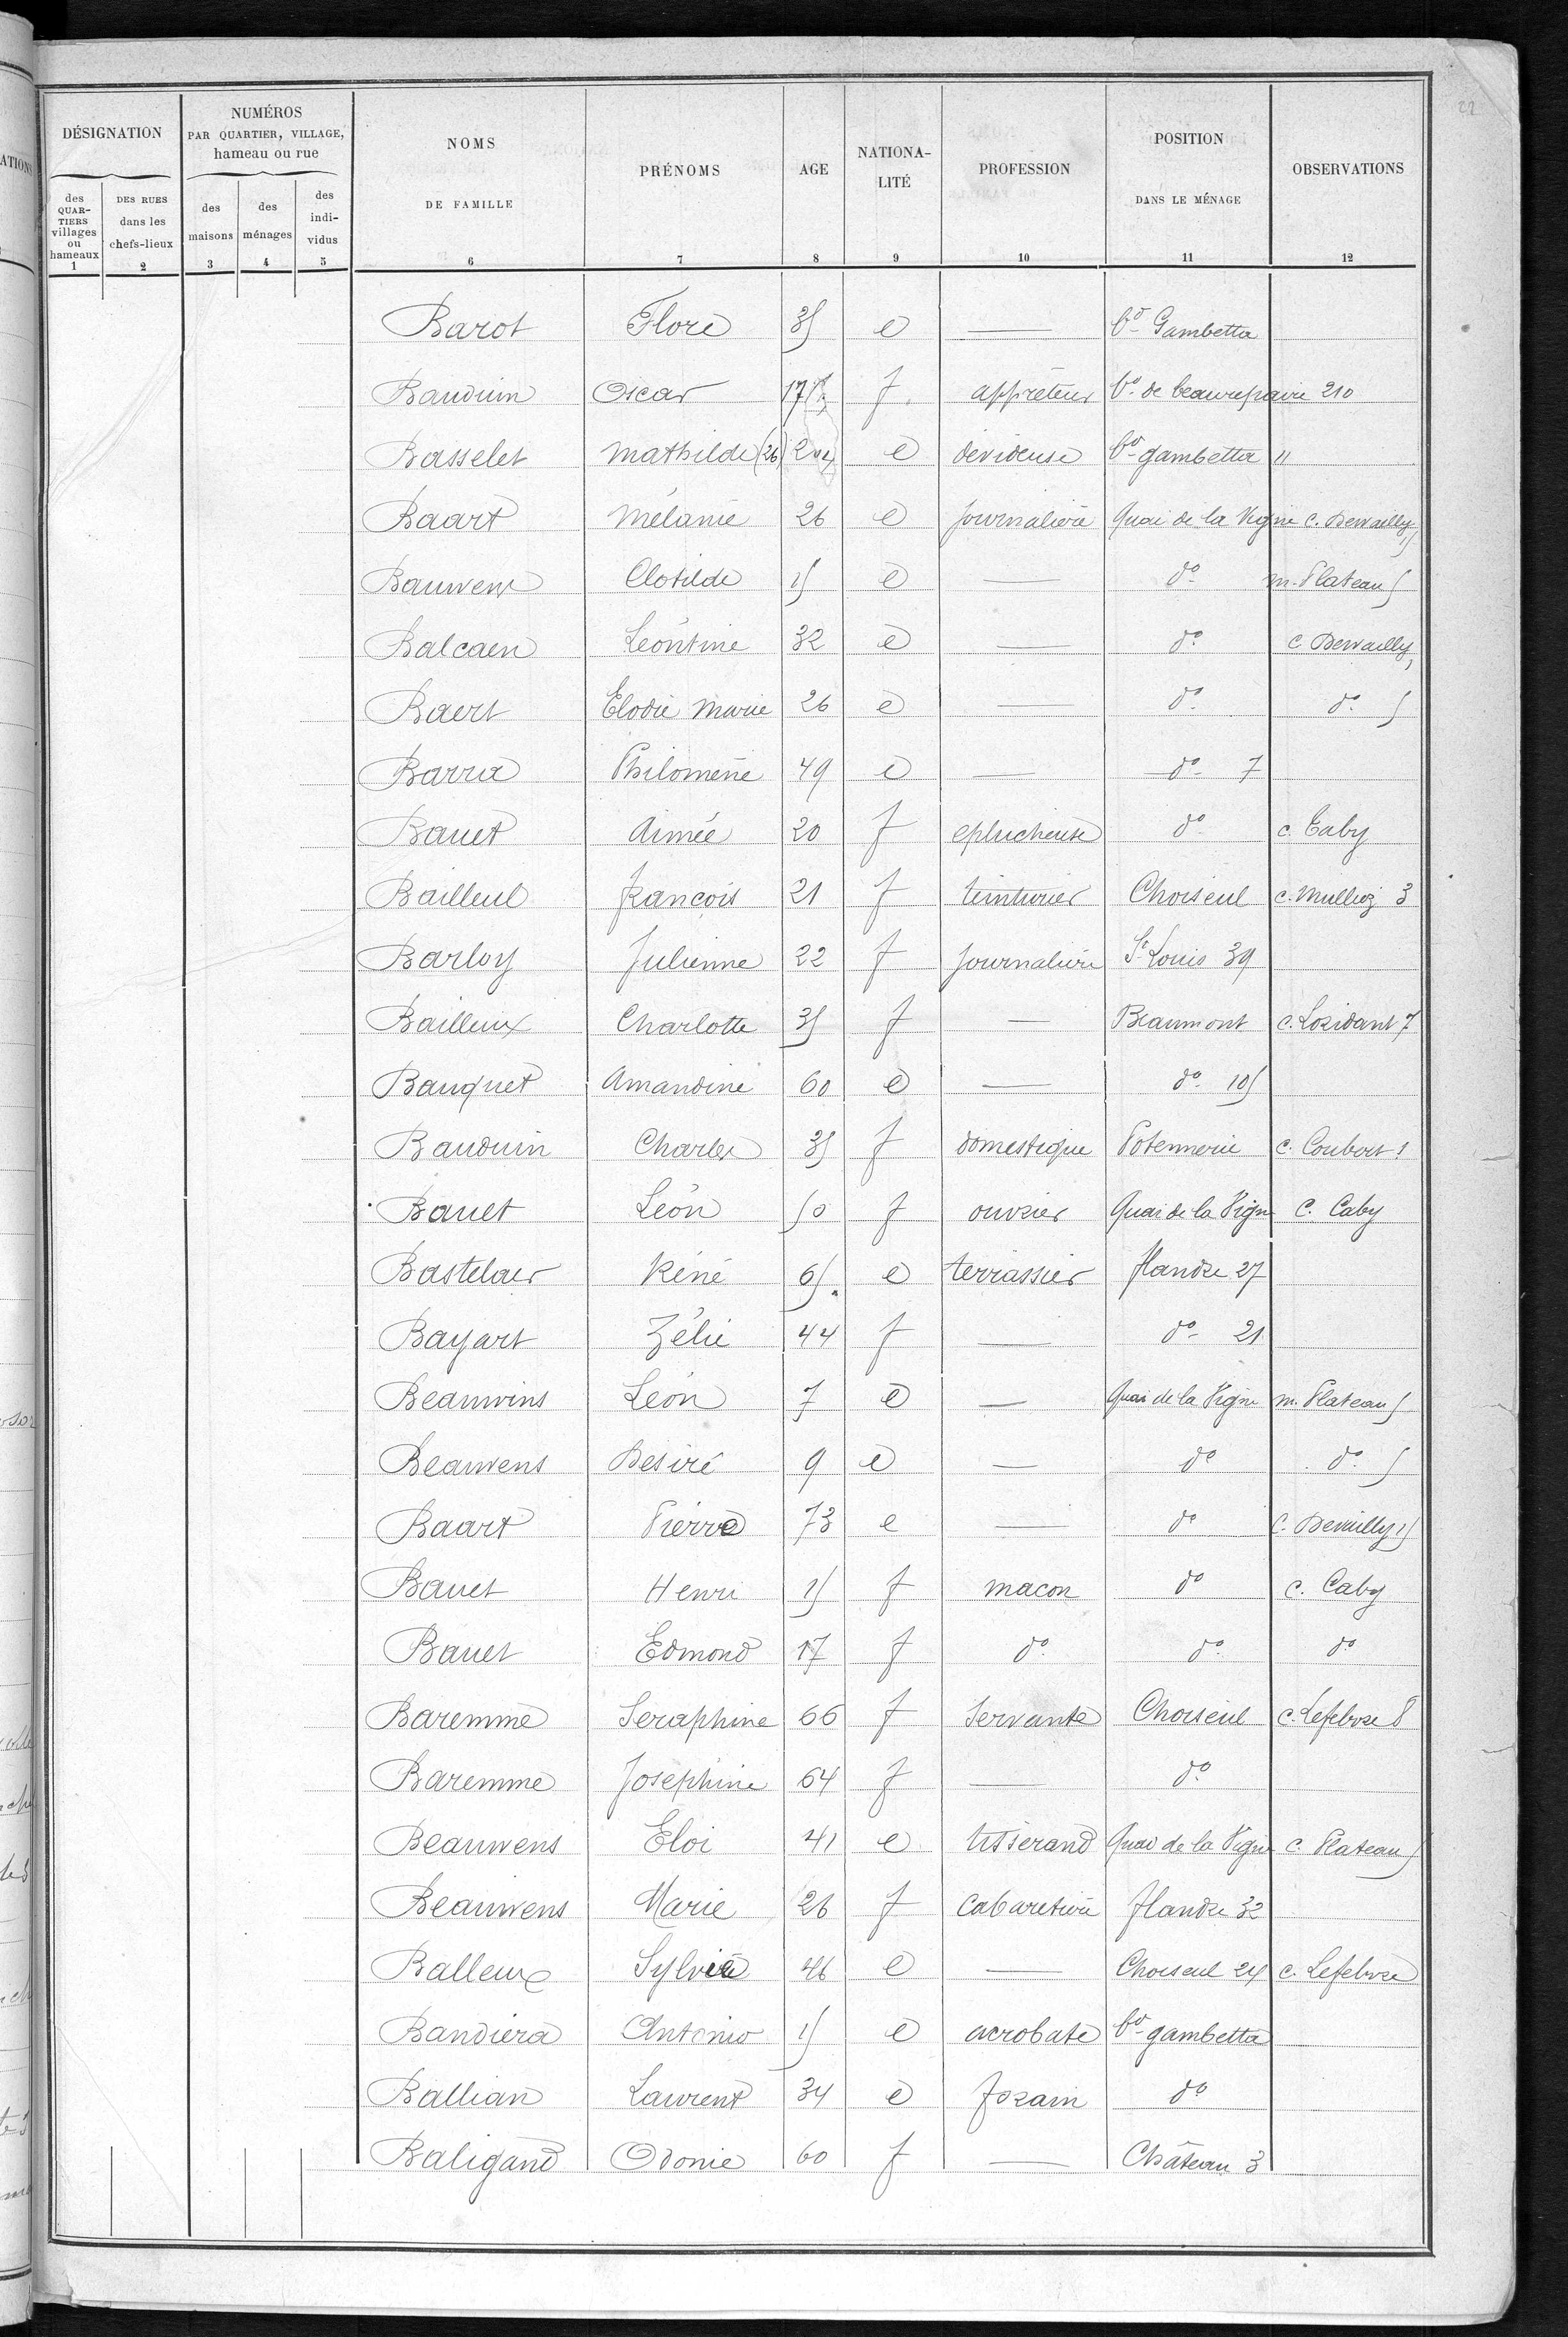 22
DÉSIGNATION
NUMÉROS
PAR QUARTIER, VILLAGE,
hameau ou rue
NOMS
DE FAMILLE
PRÉNOMS
AGE
NATIONA-
LITÉ
PROFESSION
POSITION
DANS LE MÉNAGE
OBSERVATIONS
des
QUAR-
TIERS
villages
ou
hameaux
DES RUES
dans les
chefs-lieux
des
maisons
des
ménages
des
indi-
vidus
1 2 3 4 5 6 7 8 9 10 11 12
Barot Flore 35 e — bd Gambetta
Bauduin Oscar 17 f. appréteur bd de beaurepaire 210
Basselet Mathilde (26) e dévideuse bd gambetta "
Baart Mélanie 26 e journalière Quai de la Vigne c. Dervailly 15
Bauwens Clotilde 15 e — do m. Plateau 5
Balcaen Léontine 32 e — do c Dervailly
Baert Elodie Marie 26 e — do do 5
Barra Philomène 49 e — do 7
Bauet Aimée 20 f éplucheuse do c. Caby
Bailleul françois 21 f teinturier Choiseul c. Mulliez 3
Barloy Julienne 22 f journalière St Louis 39
Bailleux Charlotte 35 f — Beaumont c. Lozidant 7
Bauquet Amandine 60 e — do 105
Bauduin Charles 35 f domestique Potennerie c. Coubort 1
Bauet Léon 50 f ouvrier Quai de la Vigne C. Caby
Bastelaer Réné 65 e terrassier flandre 27
Bayart Zélie 44 f — do 21
Beauwins Léon 7 e — Quai de la Vigne m. Plateau 5
Beauwens Desiré 9 e — do do 5
Baart Pierre 73 e — do C. Dervailly 15
Bauet Henri 15 f macon do c. Caby
Bauet Edmond 17 f do do do
Baremme Seraphine 66 f Servante Choiseul c. Lefebvre 8
Baremme Josephine 64 f — do
Beauwens Eloi 41 e tisserand Quai de la Vigne c. Plateau 5
Beauwens Marie 26 f cabaretière flandre 32
Balleux Sylvie 46 e — Choiseul 24 c. Lefebvre
Bandiera Antonio 15 e acrobate bd gambetta
Ballian Laurent 34 e forain do
Baligand Odonie 60 f — Château 3